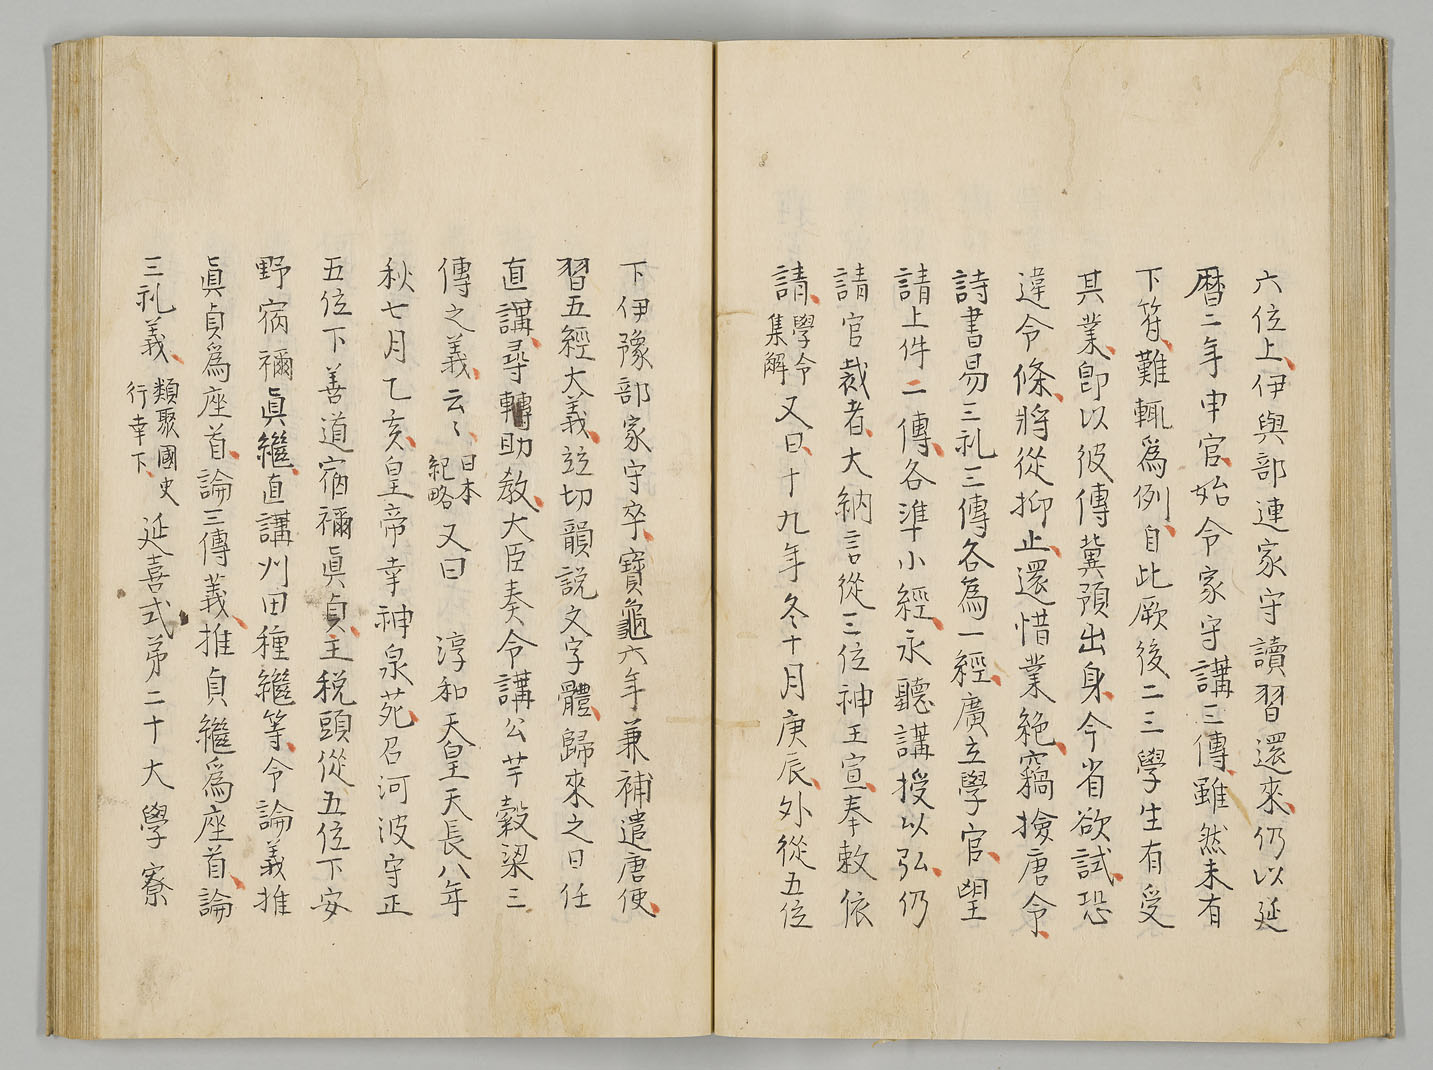 六位上伊與部連家守讀習還來仍以延
暦二年申官始令家守講三傳雖然未有
下符難輙爲例自此厥後二三學生有受
其業卽以彼傳冀預出身今省欲試恐
違令條將從抑止還惜業絶竊撿唐令
詩書易三礼三傳各爲一經廣立學官望
請上件二傳各準小經永聽講授以弘仍
請官裁者大納言從三位神王宣奉敕依
請學令集解又曰十九年冬十月庚辰外從五位
下伊豫部家守卒寶龜六年兼補遣唐使
習五經大義竝切韻説文字體歸來之日任
直講尋轉助敎大臣奏令講公羊穀梁三
傳之義云〻日本紀略又曰 淳和天皇天長八年
秋七月乙亥皇帝幸神泉苑召河波守正
五位下善道宿禰眞貞主税頭從五位下安
野宿禰眞繼直講刈田種繼等令論義推
眞貞爲座首論三傳義推貞繼爲座首論
三礼義類聚國史行幸下 延喜式弟二十大學寮